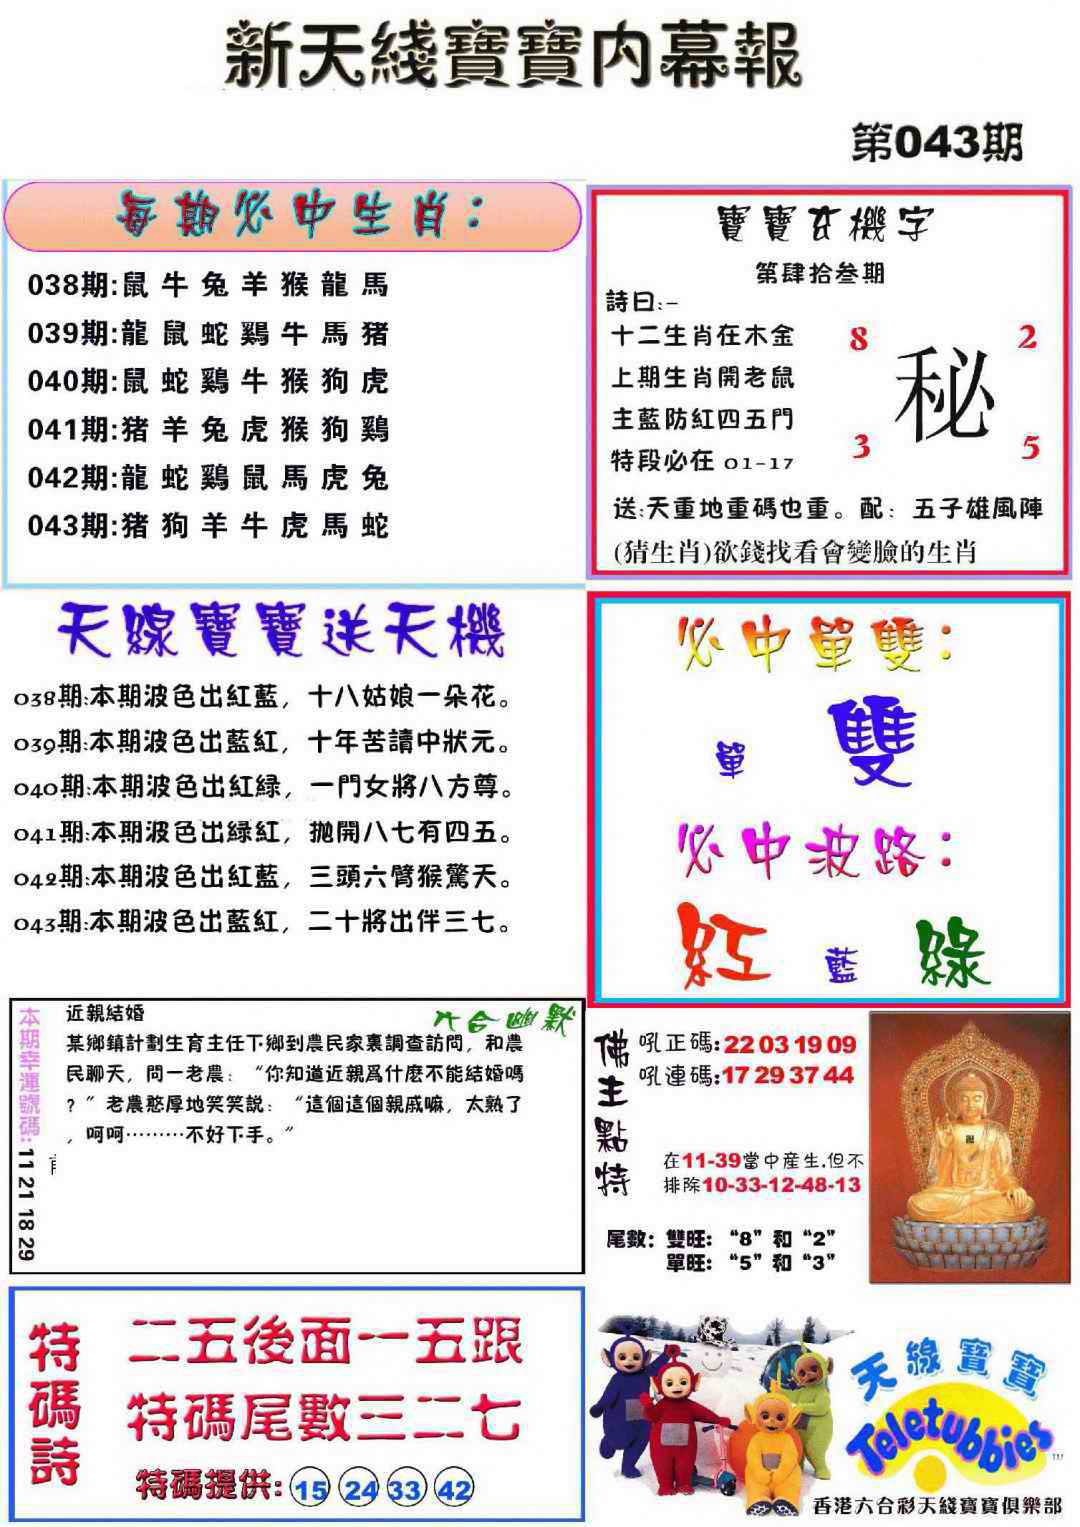 新天綫寶寶内幕報
第043期
每期必中生肖：
038期:鼠牛兔羊猴龍馬
039期:龍鼠蛇鷄牛馬猪
040期:鼠蛇鷄牛猴狗虎
041期:猪羊兔虎猴狗鷄
042期:龍蛇鷄鼠馬虎兔
043期:猪狗羊牛虎馬蛇
寶寶玄機字
第肆拾叁期
詩曰:-
十二生肖在木金
上期生肖開老鼠
主藍防紅四五門
特段必在 01-17
8 2
秘
3 5
送:天重地重碼也重。配：五子雄風陣
(猜生肖)欲錢找看會變臉的生肖
天線寶寶送天機
038期:本期波色出紅藍，十八姑娘一朵花。
039期:本期波色出藍紅，十年苦讀中狀元。
040期:本期波色出紅緑，一門女將八方尊。
041期:本期波色出緑紅，抛開八七有四五。
042期:本期波色出紅藍，三頭六臂猴驚天。
043期:本期波色出藍紅，二十將出伴三七。
必中單雙：
單 雙
必中波路：
紅 藍 綠
本期幸運號碼:11 21 18 29
六合幽默
近親結婚
某鄉鎮計劃生育主任下鄉到農民家裏調查訪問，和農
民聊天，問一老農：“你知道近親爲什麽不能結婚嗎
？”老農憨厚地笑笑説：“這個這個親戚嘛，太熟了
，呵呵………不好下手。”
佛主點特
吼正碼:22 03 19 09
吼連碼:17 29 37 44
在11-39當中産生.但不
排除10-33-12-48-13
尾數：雙旺：“8”和“2”
單旺：“5”和“3”
特碼詩
二五後面一五跟
特碼尾數三二七
特碼提供: 15 24 33 42
天線寶寶
Teletubbies
TM
香港六合彩天綫寶寶俱樂部